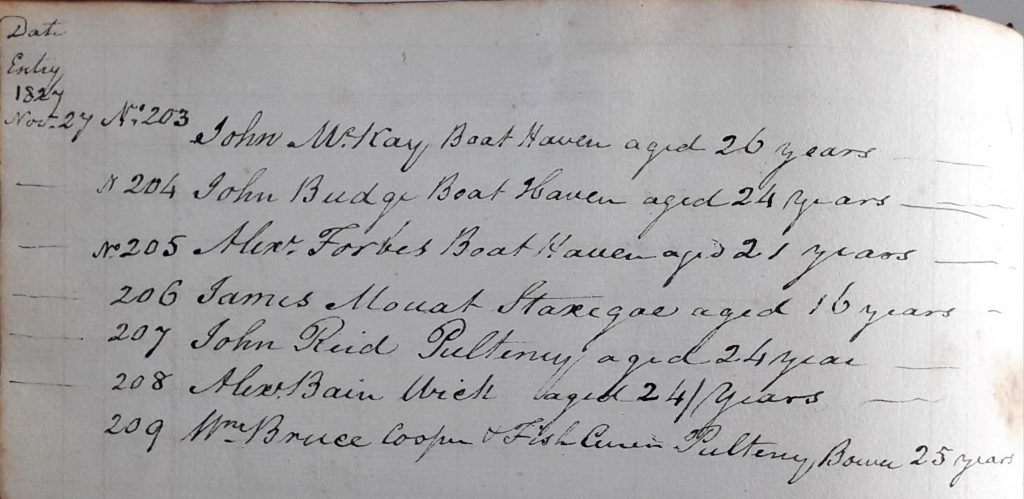 Date
Entry
1827
Nov. 27 No. 203 John Mc.Kay Boat Haven aged 26 years
N 204 John Budge Boat Haven aged 24 years
No. 205 Alexr. Forbes Boat Haven aged 21 years
206 James Mouat Staxegoe aged 16 years
207 John Reid Pulteney aged 24 year
208 Alexr. Bain Wick aged 24 years
209 Wm. Bruce Cooper & Fish Curer Pulteney, Bower 25 years